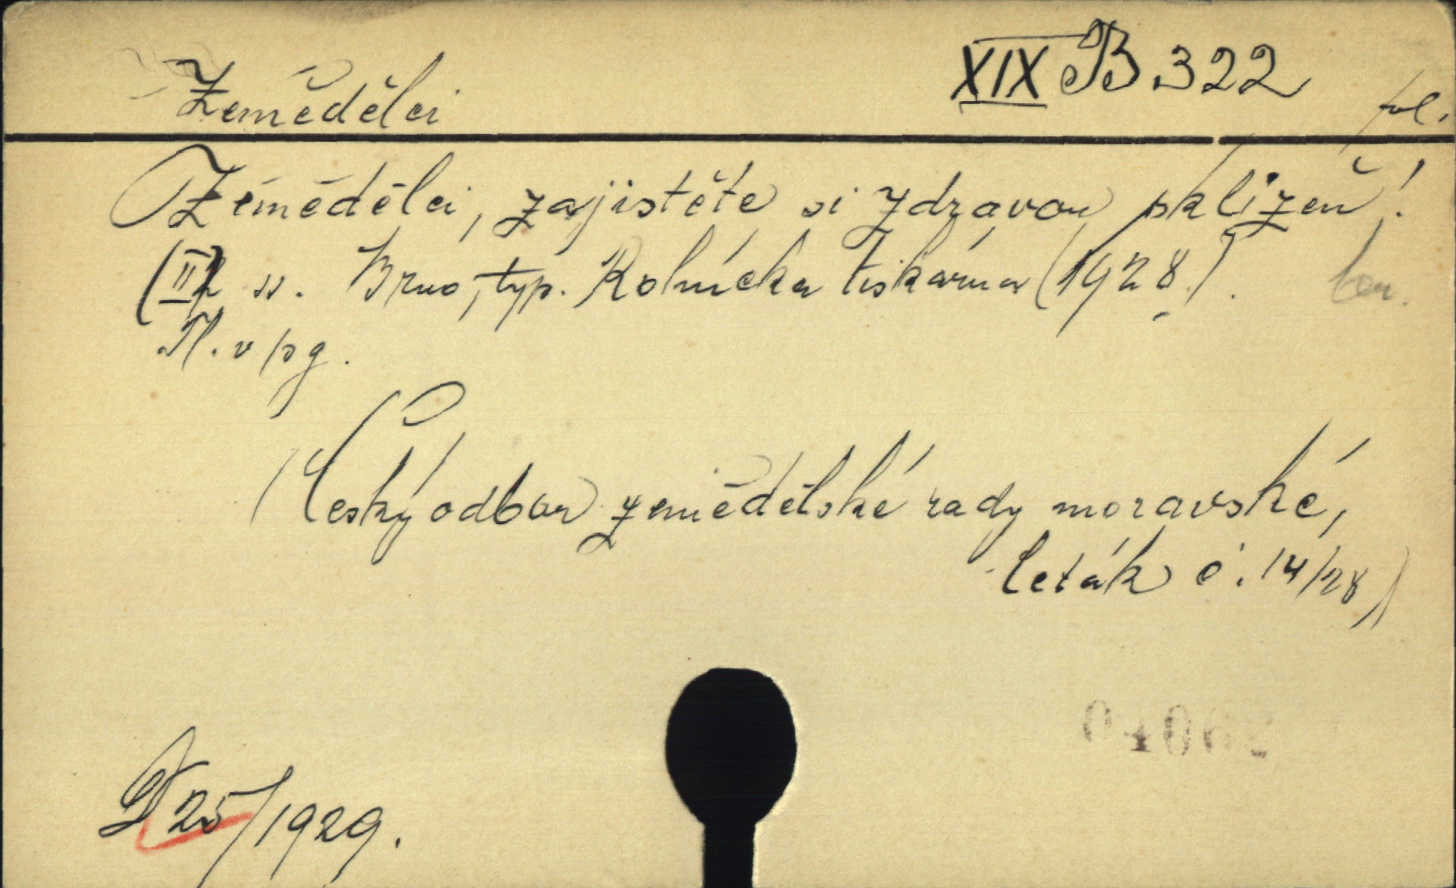 XIX B 322
Zemědělci
fol.
Zemědělci, zajistěte si zdravou sklizeň!
(II) ss. Brno, typ. Rolnická tiskárna (1928).
Tl. v pg.
(Český odbor zemědělské rady moravské,
leták č. 14/28)
D 25/1929.